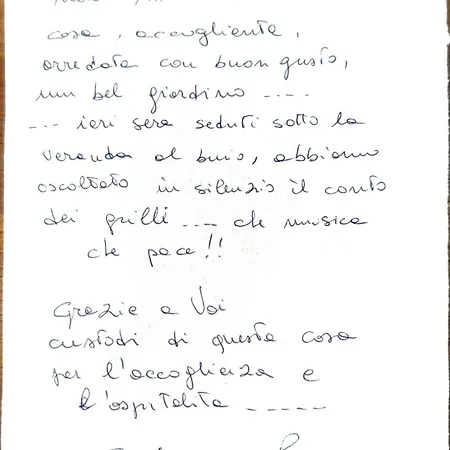 casa, accogliente,
arredata con buon gusto,
un bel giardino ----
--- ieri sera seduti sotto la
veranda al buio, abbiamo
ascoltato in silenzio il canto
dei grilli --- che musica
che pace!!
Grazie a Voi
custodi di questa casa
per l'accoglienza e
l'ospitalita -----